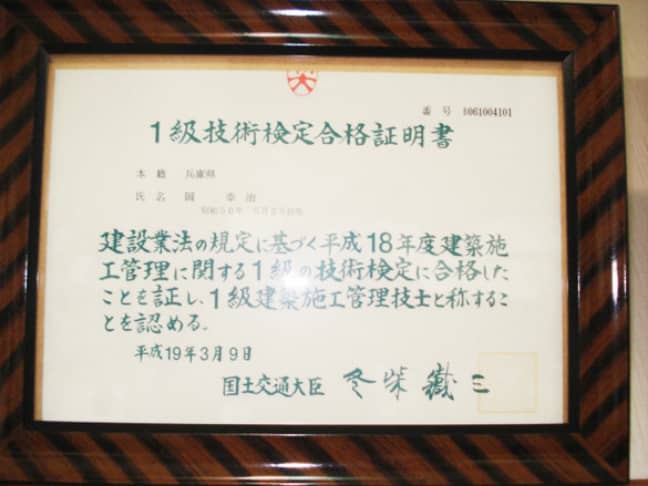 番号 6061004101
1級技術検定合格証明書
本籍 兵庫県
氏名 幸治
建設業法の規定に基づく平成18年度建築施
工管理に関する1級の技術検定に合格した
ことを証し、1級建築施工管理技士と称するこ
とを認める。
平成19年3月9日
国土交通大臣 冬柴鐵三